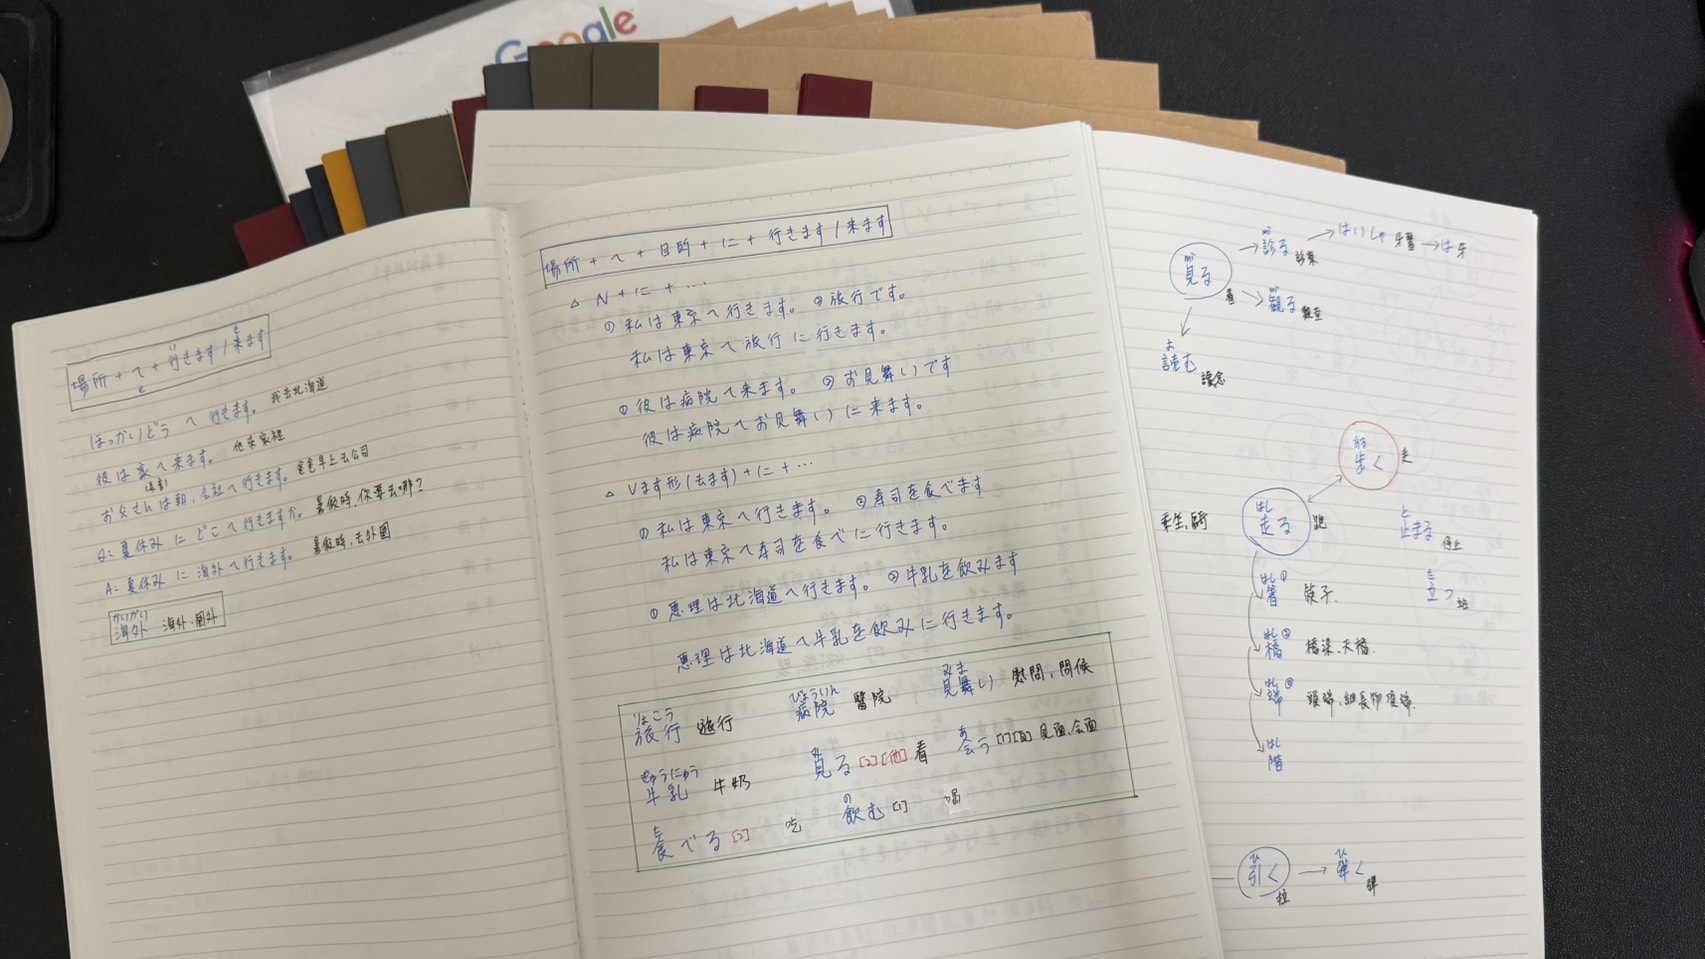 Google
場所+へ+行きます/来ます
い
き
e
ほっかいどう へ 行きます。 我去北海道
彼は家へ来ます。 他來家裡
お父さんは朝、会社へ行きます。爸爸早上去公司
Q: 夏休みに どこへ行きますか。 暑假時,你要去哪?
A: 夏休み に 海外へ行きます。 暑假時,去外國
かいがい
海外 海外・國外
場所+へ+目的+に+行きます/来ます
△ N+に+…
① 私は東京へ行きます。②旅行です。
私は東京へ旅行に行きます。
① 彼は病院へ来ます。 ②お見舞いです
彼は病院へお見舞いに来ます。
△ Vます形(去ます)+に+…
① 私は東京へ行きます。 ②寿司を食べます
私は東京へ寿司を食べに行きます。
① 恵理は北海道へ行きます。②牛乳を飲みます
恵理は北海道へ牛乳を飲みに行きます。
りょこう
旅行 遊行
びょういん
病院 醫院
みま
見舞い 慰問,問候
ぎゅうにゅう
牛乳 牛奶
み
見る [2][他] 看
あ
会う [1][自] 見面、会面
た
食べる [2] 吃
の
飲む [1] 喝
mi
見る 看
mi
診る 診察
はいしゃ 牙醫
は 牙
mi
観る 觀查
よ
読む 讀念
ある
歩く 走
はし
走る 跑
と
止まる 停止
た
立つ 站
はし①
箸 筷子.
はし②
橋 橋梁、天橋.
はし③
端 頭端、細長物頂端.
はし
階
ひ
引く 拉
ひ
弾く 彈